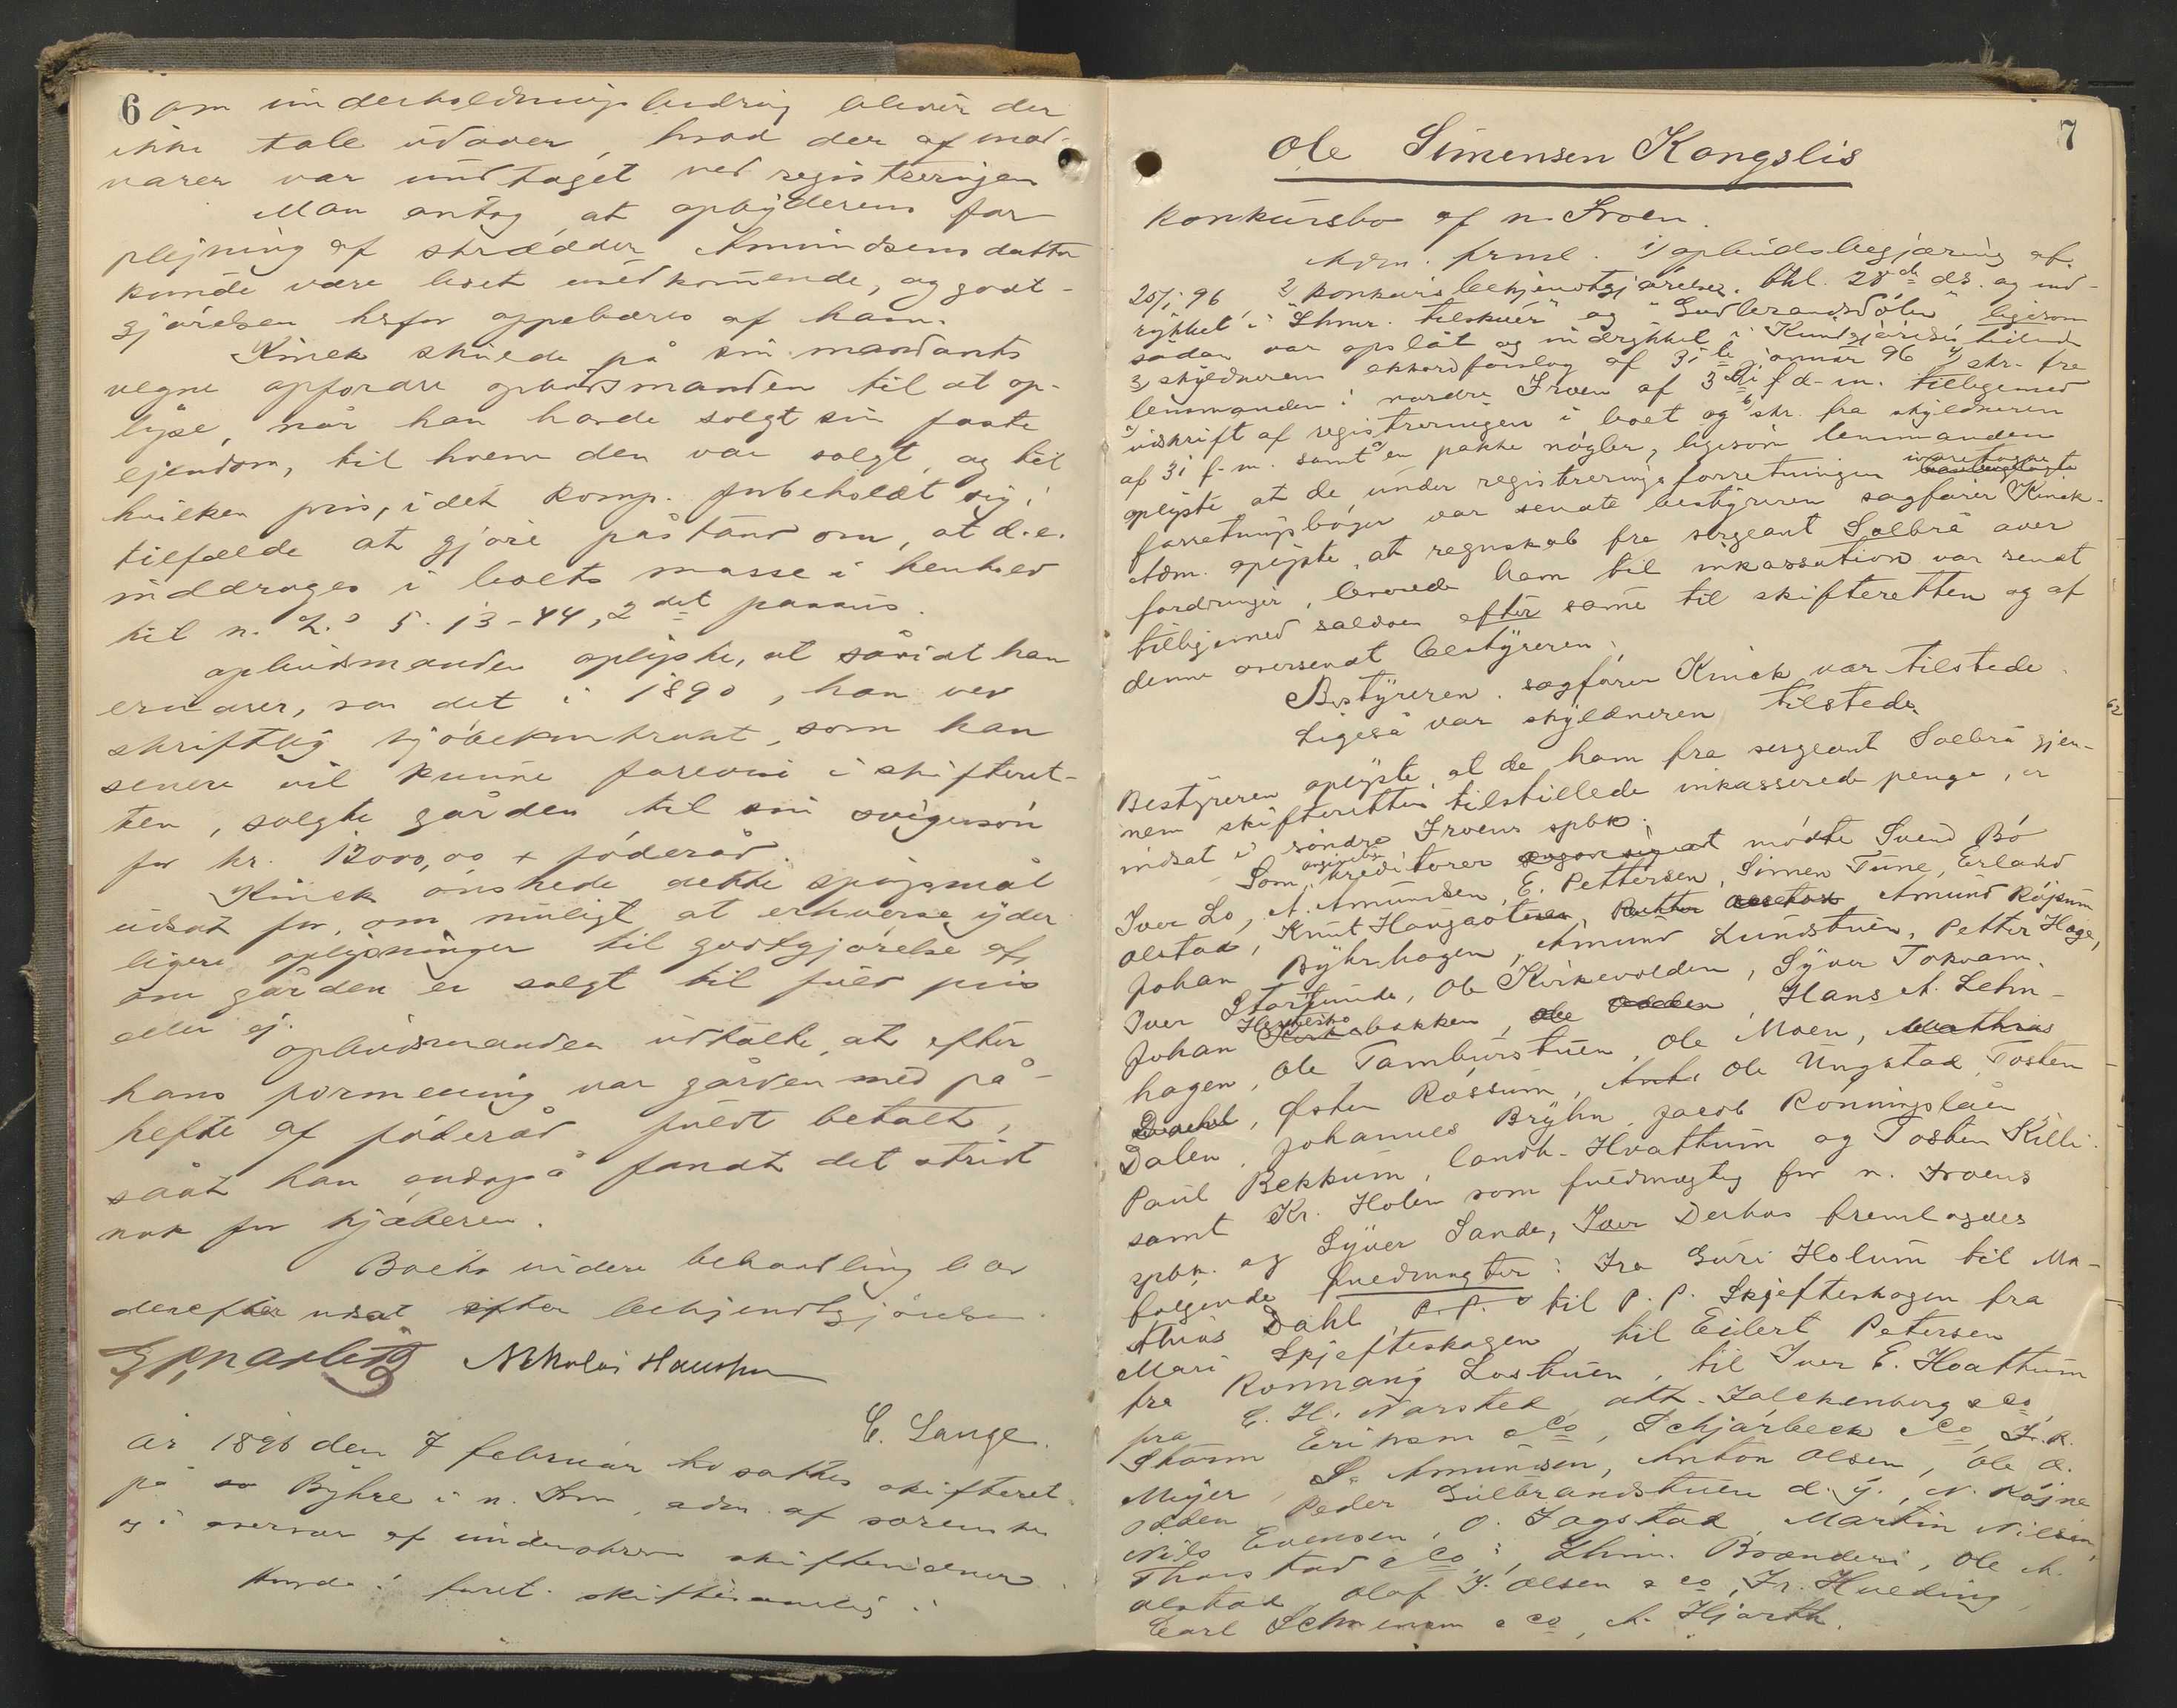 6 om underholdningsbidrag blever der
ikke tale udover, hvad der af mad-
varer var undtaget ved registreringen
Man antog, at opbyderens for
plejning af skrædder Amundsens datter
kunde være boet uvedkommende, og godt-
gjørelsen herfor oppebæres af ham.
Kinck skulde på sin mandants
vegne opfordre opbudsmanden til at op-
lyse, når han havde solgt sin faste
ejendom, til hvem den var solgt, og til
hvilken pris, idet komp. forbeholdt sig i
tilfælde at gjøre påstand om, at d. e.
inddrages i boets masse i henhold
til n. L. 5-13-44, 2det passus.
opbudsmanden oplyste, at såvidt han
erindrer, var det i 1890, han ved
skriftlig kjøbekontrakt, som han
senere vil kunne forevise i skifteret-
ten, solgte gården til sin svigersøn
for kr. 12000,00 + føderåd.
Kinck ønskede dette spørgsmål
udsat for om muligt at erhverve yder
ligere oplysninger til godtgjørelse af,
om gården er solgt til fuld pris
eller ej.
opbudsmanden udtalte, at efter
hans formening var gården med på-
hefte af føderåd fuldt betalt,
såat han endogså fandt det stridt
nok for kjøberen.
Boets videre behandling blev
derefter udsat efter bekjendtgjørelse.
Nikolai
E. Lange.
år 1896 den 7 februar sattes skifteret
på Byhre i n. Fron, adm. af sorenskr
og i overvær af underskrevne skiftevidner
Havde: foret. skiftesamling i
7
Ole Simensen Kongslis
konkursbo af n. Froen.
Adm. frml. 1) opbudsbegjæring af
25/1 96, 2) konkursbekjendtgjørelse. bkl. 28de ds. og ind-
rykket i "Lhmr. tilskuer" og "Gudbrandsdølen", ligesom
sådan var opslåt og indrykket i "Kundgjørelsestidende"
3) skyldnerens akkordforslag af 31te januar 96 4) skr. fra
lensmanden i nordre Froen af 3die f d. m. tilligemed
5) udskrift af registreringen i boet og 6) skr. fra skyldneren
af 31 f. m. samt en pakke nøgler, ligesom lensmanden
oplyste at de under registreringsforretningen
forretningsbøger var sendt bestyreren sagfører Kinck.
Adm. oplyste, at regnskab fra sergeant Solbrå over
fordringer, leverede ham til inkassation var sendt
tilligemed saldoen efter samme til skifteretten og af
denne oversendt bestyreren.
Bestyreren. sagfører Kinck var tilstede.
Ligeså var skyldneren tilstede.
Bestyreren oplyste, at de ham fra sergeant Solbrå gjen-
nem skifteretten tilstillede inkasserede penge, er
indsat i søndre Froens spbk.
Som angivelige kreditorer mødte Svend Bø
Iver Lo, A. Amundsen, E. Pettersen, Simen Tune, Erland
Olstad, Knut Haugsøtesen, Amund Røssum
Johan Byhrhagen, Amund Lundstuen, Petter Hage,
Iver Storlunde, Ole Kirkevolden, Syver Tokvam,
Johan bakken, Hans A. Lehn-
hagen, Ole Tamburstuen, Ole Moen,
Østen Røssum, Ole Ungstad, Tosten
Dalen, Johannes Bryhn, Jacob Rønningsløen
Paul Bekkum, landh. Hvattum og Tosten Killi.
samt Kr. Holen som fuldmægtig for n. Froens
spbk. og Syver Sande, Iver Derhos fremlagdes
følgende fuldmagter: Fra Guri Holum til Ma-
thias Dahl, til P. P. Skjefteshagen fra
Mari Skjefteshagen, til Eilert Petersen
fra Ronnaug Lostuen, til Iver E. Hvattum
fra E. H. Narsted, Falckenberg & Co,
Storm Eriksen & Co, Schjørbeck & Co, F. R.
Meyer, S. Amundsen, Anton Olsen, Ole O.
Odden, Peder Gulbrandstuen d. y., N. Røjne
Nils Evensen, O. Fagstad, Martin Nilsen,
Thorstad & Co, Lhm. Brænderi, Ole A.
Olstad, Olof J. Olsen & Co, Fr. Huelding
Carl & Co, A. Hjorth.